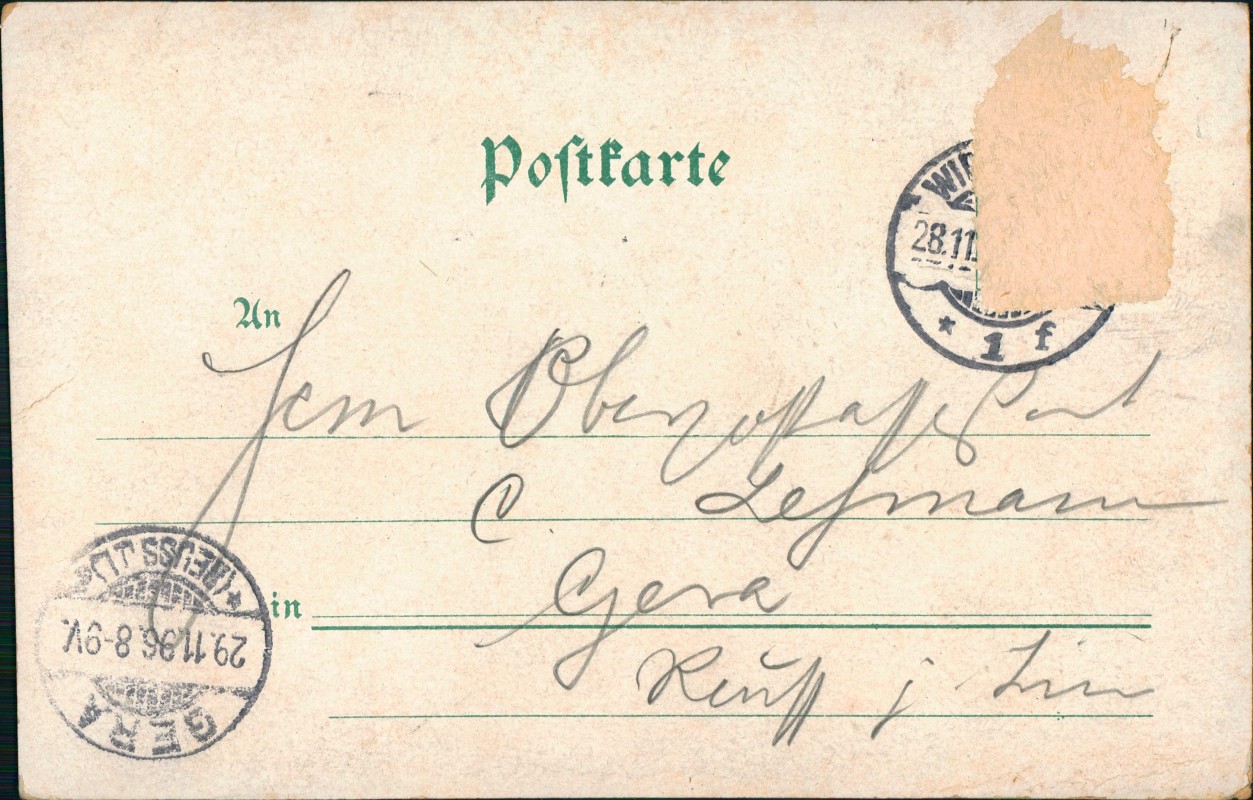 Postkarte
WI
28.11.
* 1 f
An
Herrn Oberpostassistent
C Lehmann
in Gera
Reuß j Linie
GERA
29.11.96. 8-9V.
* (REUSS J.L.) *